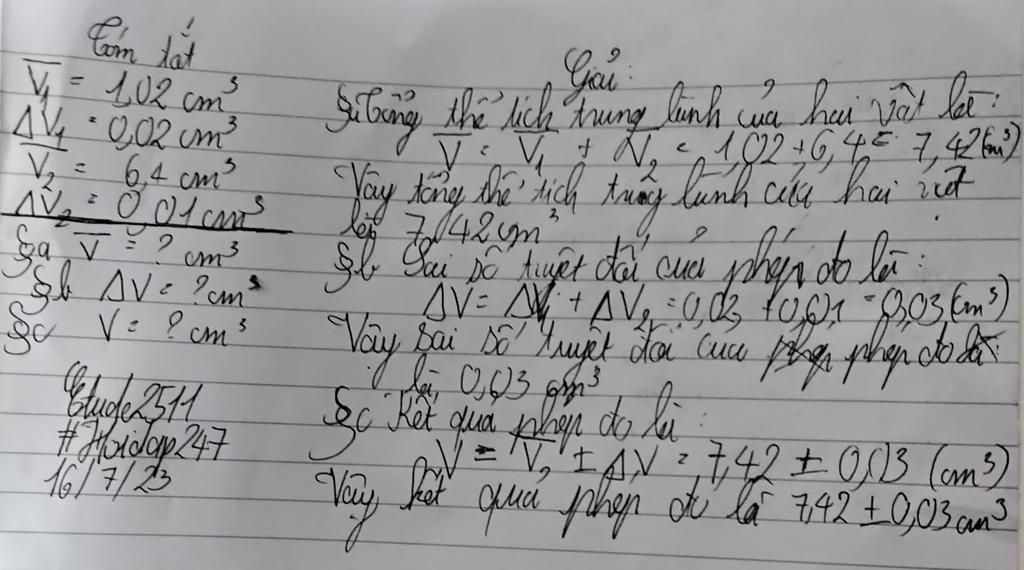 Tóm tắt
V₁ = 1,02 cm³
ΔV₁ = 0,02 cm³
V₂ = 6,4 cm³
ΔV₂ = 0,01 cm³
§a V = ? cm³
§b ΔV = ? cm³
§c V = ? cm³
Etude2511
#Hoidap247
16/7/23
Giải:
§a Tổng thể tích trung bình của hai vật là:
V = V₁ + V₂ = 1,02 + 6,4 = 7,42 (cm³)
Vậy tổng thể tích trung bình của hai vật
là 7,42 cm³
§b Sai số tuyệt đối của phép đo là:
ΔV = ΔV₁ + ΔV₂ = 0,02 + 0,01 = 0,03 (cm³)
Vậy sai số tuyệt đối của phép đo
là 0,03 cm³
§c Kết quả phép đo là:
V = V₂ ± ΔV = 7,42 ± 0,03 (cm³)
Vậy kết quả phép đo là 7,42 ± 0,03 cm³